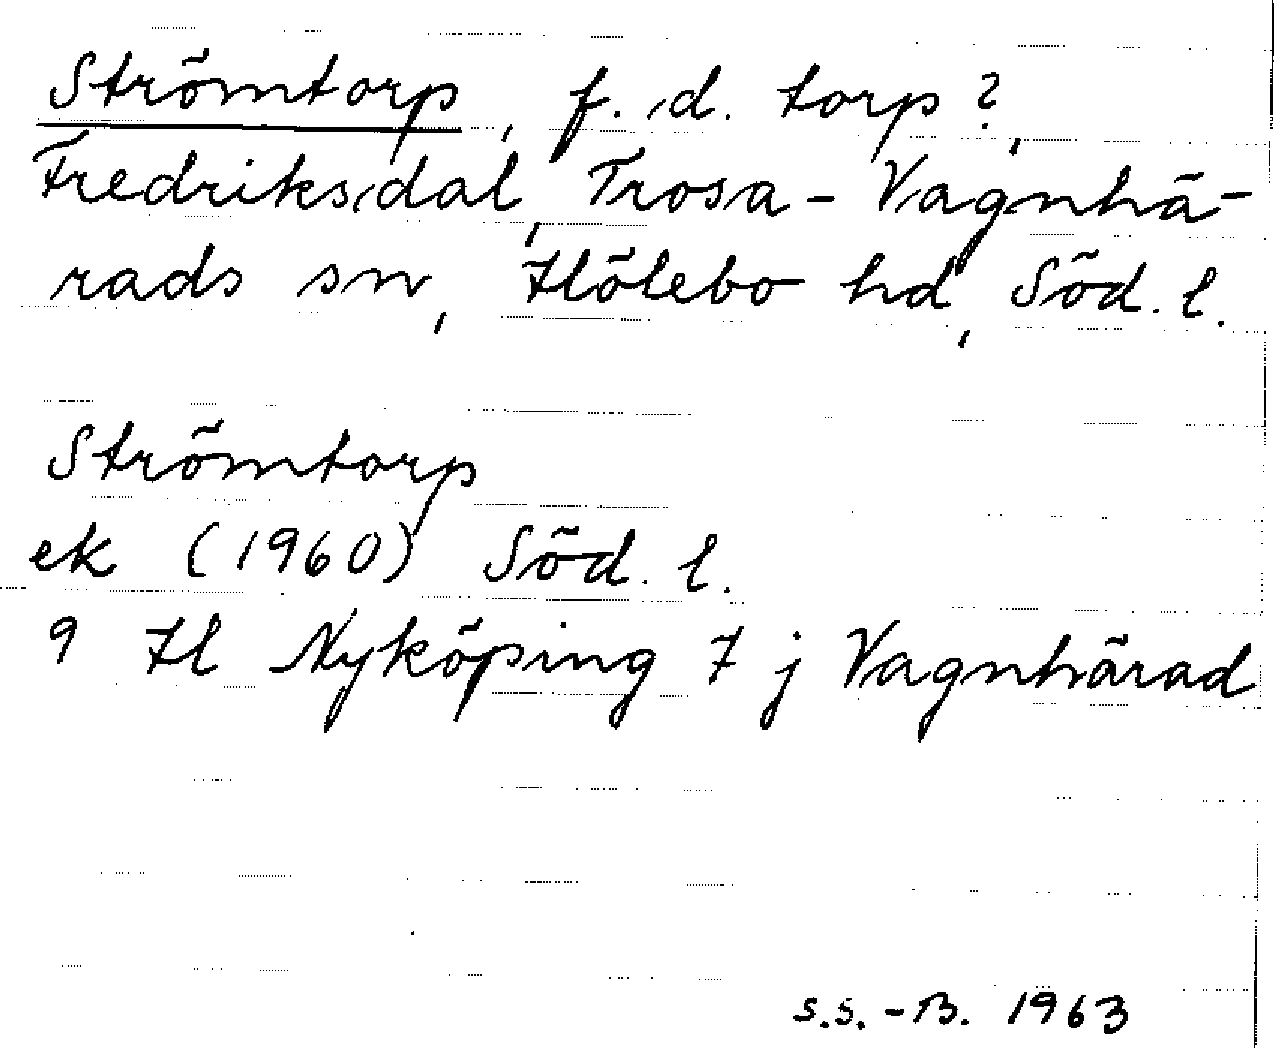 Strömtorp, f. d. torp?,
Fredriksdal, Trosa-Vagnhä-
rads sn, Hölebo hd, Söd. l.
Strömtorp
ek (1960) Söd. l.
9 H Nyköping 7 j Vagnhärad
S.S.-B. 1963